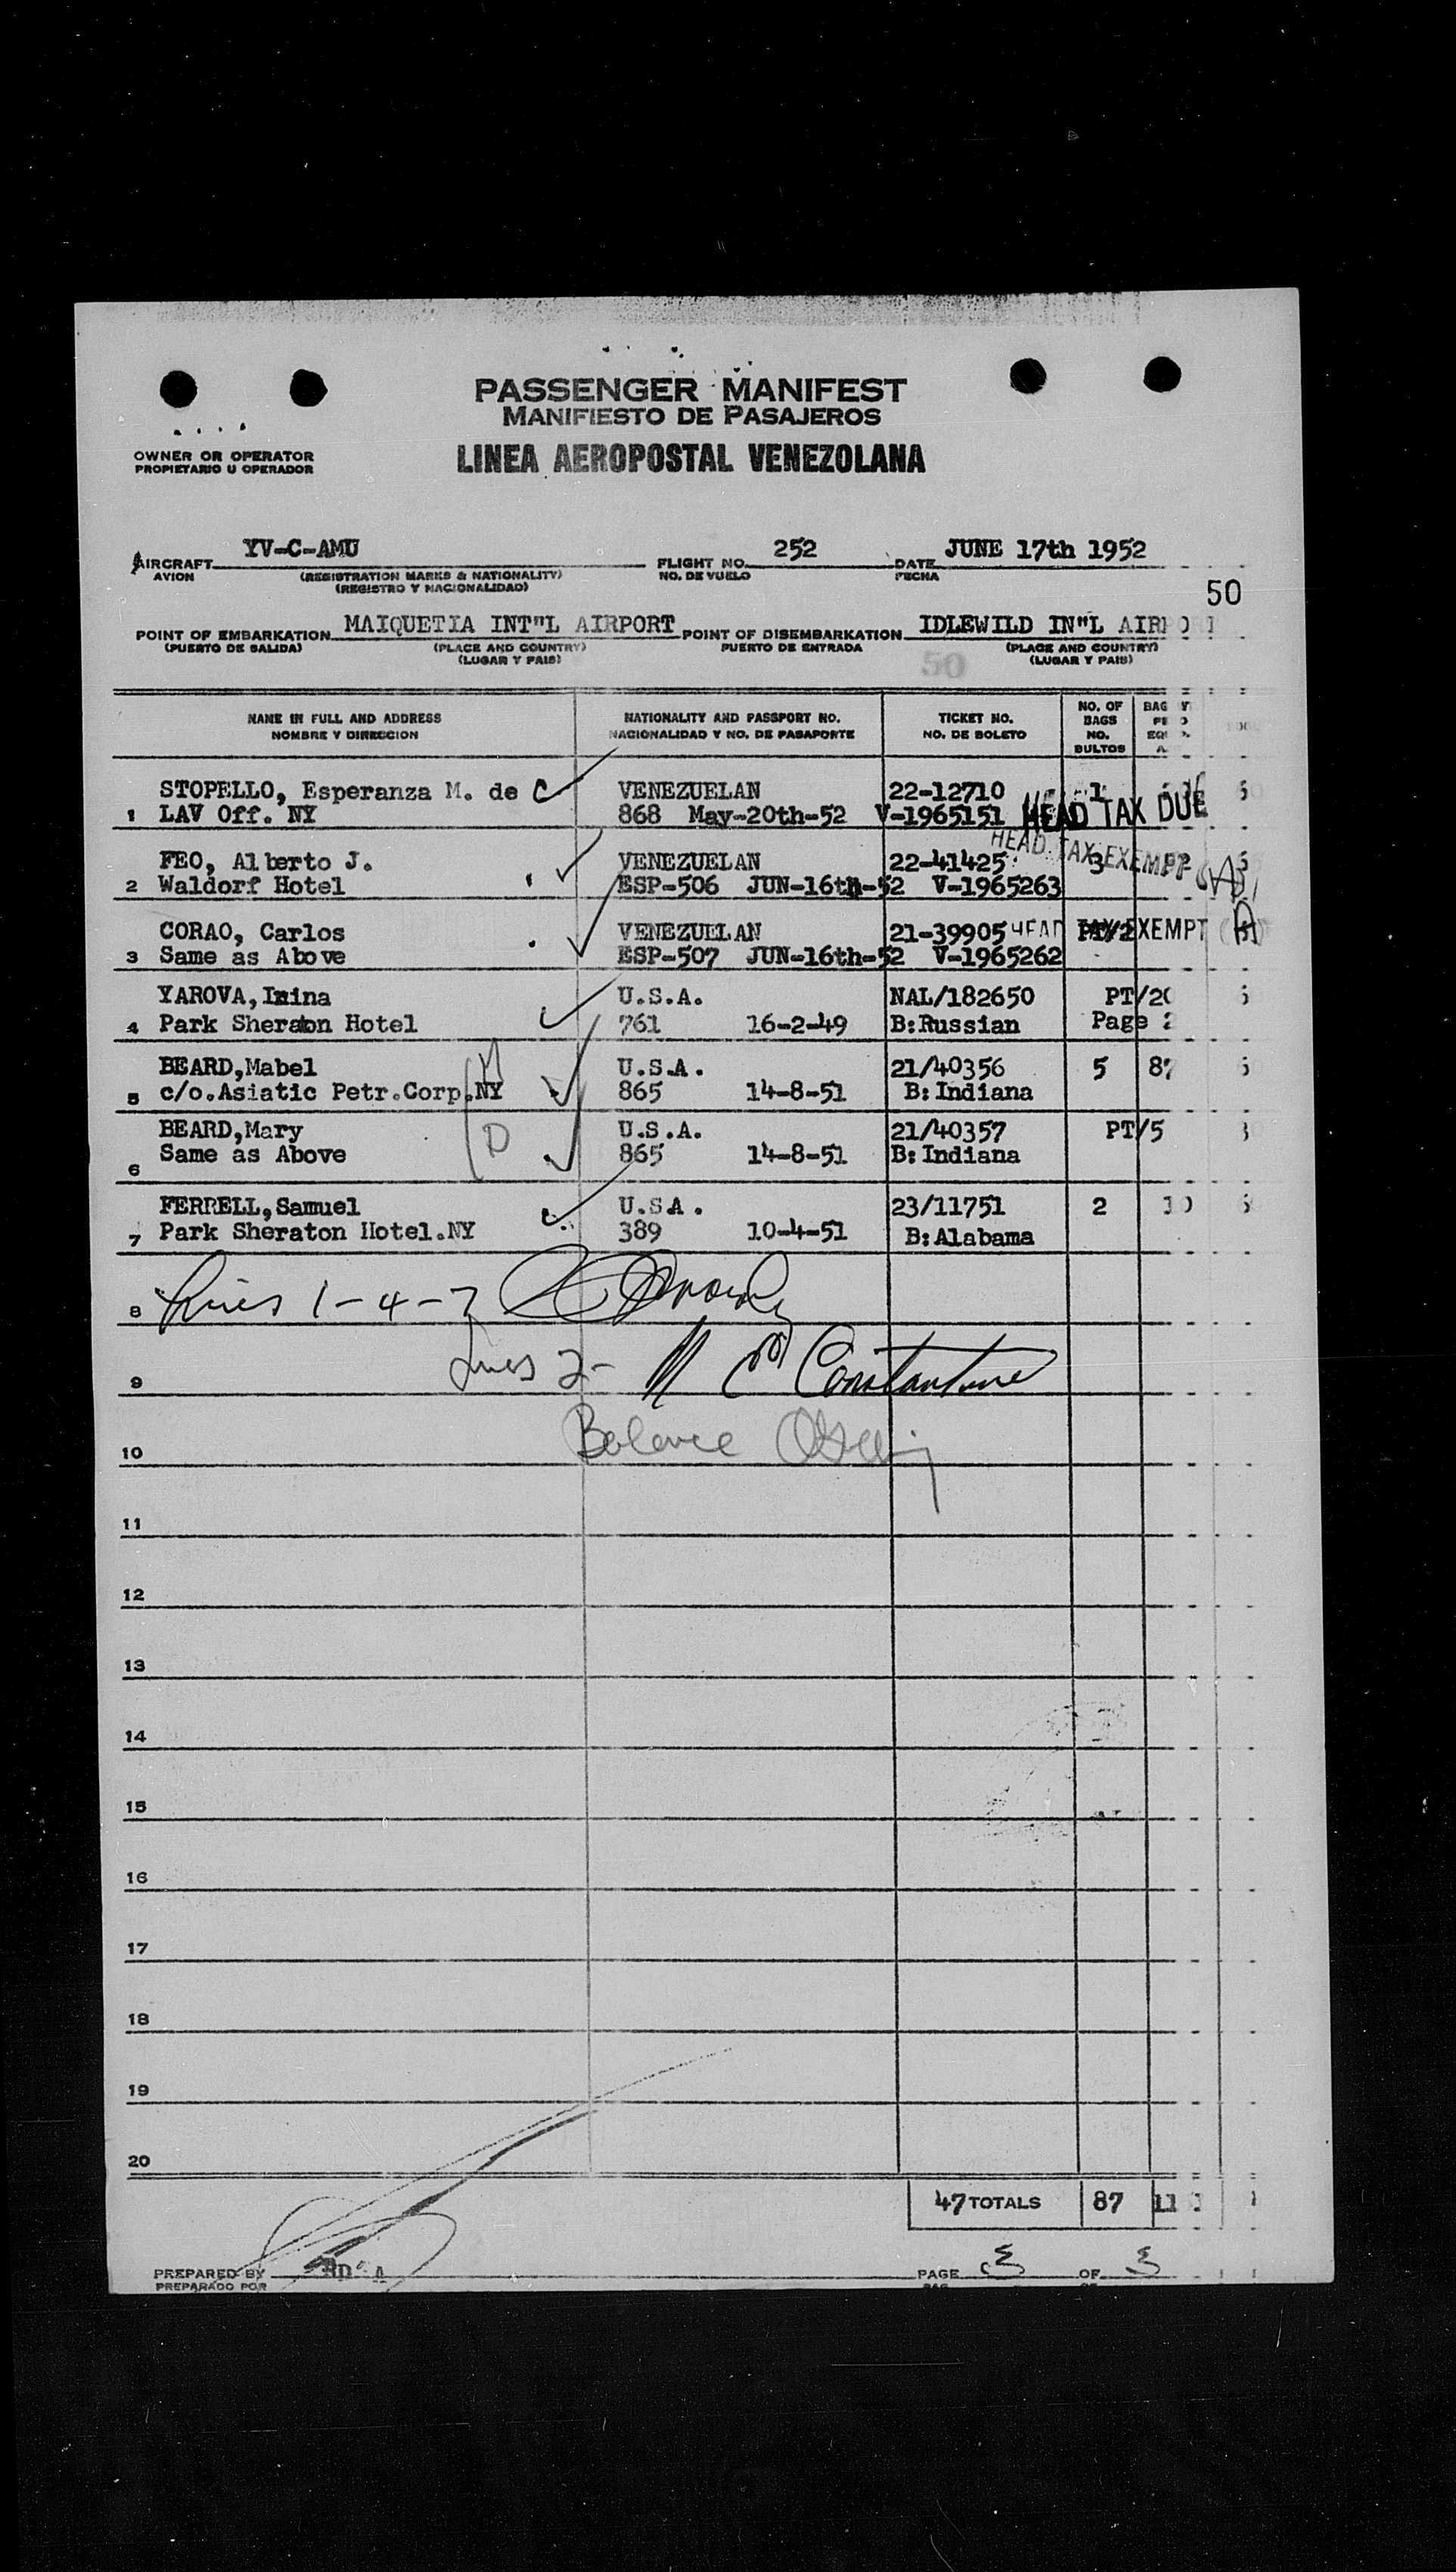 PASSENGER MANIFEST
MANIFIESTO DE PASAJEROS
OWNER OR OPERATOR
PROPIETARIO U OPERADOR
LINEA AEROPOSTAL VENEZOLANA
AIRCRAFT YV-C-AMU FLIGHT NO. 252 DATE JUNE 17th 1952
AVION (REGISTRATION MARKS & NATIONALITY) NO. DE VUELO FECHA
(REGISTRO Y NACIONALIDAD)
50
POINT OF EMBARKATION MAIQUETIA INT"L AIRPORT POINT OF DISEMBARKATION IDLEWILD IN"L
(PUERTO DE SALIDA) (PLACE AND COUNTRY) PUERTO DE ENTRADA (PLACE AND COUNTRY)
(LUGAR Y PAIS) 50 (LUGAR Y PAIS)
NAME IN FULL AND ADDRESS NATIONALITY AND PASSPORT NO. TICKET NO. NO. OF BAGS
NOMBRE Y DIRECCION NACIONALIDAD Y NO. DE PASAPORTE NO. DE BOLETO NO. BULTOS
STOPELLO, Esperanza M. de C VENEZUELAN 22-12710 1
1 LAV Off. NY 868 May-20th-52 V-1965151 HEAD TAX DUE
FEO, Alberto J. VENEZUELAN 22-41425 HEAD TAX EXEMPT 3
2 Waldorf Hotel ESP-506 JUN-16th-52 V-1965263
CORAO, Carlos VENEZUELAN 21-39905 HEAD TAX EXEMPT
3 Same as Above ESP-507 JUN-16th-52 V-1965262
YAROVA, U.S.A. NAL/182650
4 Park Sheraton Hotel 761 16-2-49 B:Russian Page
BEARD,Mabel U.S.A. 21/40356 5
5 c/o.Asiatic Petr.Corp.NY 865 14-8-51 B:Indiana
BEARD,Mary D U.S.A. 21/40357 PT/5
6 Same as Above 865 14-8-51 B:Indiana
FERRELL,Samuel U.S.A. 23/11751 2
7 Park Sheraton Hotel.NY 389 10-4-51 B:Alabama
8 Lines 1-4-7
9 Lines 2- Constantine
10 Balance
11
12
13
14
15
16
17
18
19
20
47 TOTALS 87
PREPARED BY PAGE 3 OF 3
PREPARADO POR